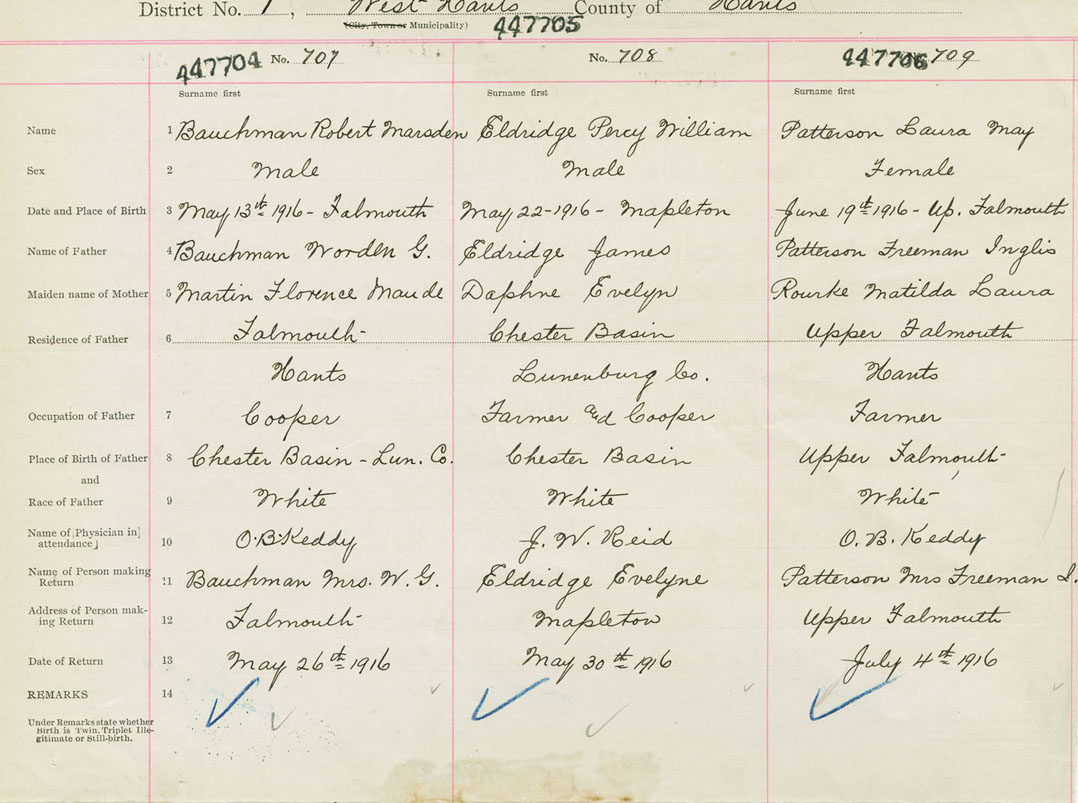 District No. 7, West Hants County of Hants
(City, Town or Municipality) 447705
447704 No. 707 No. 708 447706 709
Surname first Surname first Surname first
Name 1 Bauchman Robert Marsden Eldridge Percy William Patterson Laura May
Sex 2 Male Male Female
Date and Place of Birth 3 May 13th 1916 - Falmouth May, 22-1916 - Mapleton June 19th 1916 - Up. Falmouth
Name of Father 4 Bauchman Worden G. Eldridge James Patterson Freeman Inglis
Maiden name of Mother 5 Martin Florence Maude Daphne Evelyn Rourke Matilda Laura
Residence of Father 6 Falmouth Chester Basin Upper Falmouth
Hants Lunenburg Co. Hants
Occupation of Father 7 Cooper Farmer and Cooper Farmer
Place of Birth of Father 8 Chester Basin - Lun. Co. Chester Basin Upper Falmouth
and
Race of Father 9 White White White
Name of [Physician in]
attendance] 10 O.B. Keddy J. W. Reid O. B. Keddy
Name of Person making
Return 11 Bauchman Mrs. W. G. Eldridge Evelyne Patterson Mrs Freeman I.
Address of Person mak-
ing Return 12 Falmouth Mapleton Upper Falmouth
Date of Return 13 May 26th 1916 May 30th 1916 July 4th 1916
REMARKS 14
Under Remarks state whether
Birth is Twin, Triplet Ille-
gitimate or Still-birth.